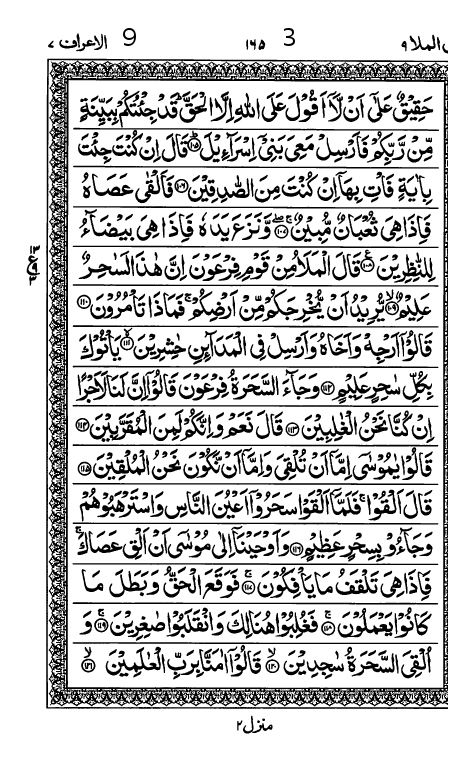 ل الملا ۹ 3 ۱۶۵ 9 الاعراف ۷
حَقِيْقٌ عَلٰٓى اَنْ لَّاۤ اَقُوْلَ عَلَى اللّٰهِ اِلَّا الْحَقَّ ؕ قَدْ جِئْتُكُمْ بِبَيِّنَةٍ
مِّنْ رَّبِّكُمْ فَاَرْسِلْ مَعِيَ بَنِيْۤ اِسْرَآءِيْلَ ؕ ﴿۱۰۵﴾ قَالَ اِنْ كُنْتَ جِئْتَ
بِاٰيَةٍ فَاْتِ بِهَاۤ اِنْ كُنْتَ مِنَ الصّٰدِقِيْنَ ﴿۱۰۶﴾ فَاَلْقٰى عَصَاهُ
فَاِذَا هِيَ ثُعْبَانٌ مُّبِيْنٌ ۚۖ ﴿۱۰۷﴾ وَّنَزَعَ يَدَهٗ فَاِذَا هِيَ بَيْضَآءُ
لِلنّٰظِرِيْنَ ﴿۱۰۸﴾ قَالَ الْمَلَاُ مِنْ قَوْمِ فِرْعَوْنَ اِنَّ هٰذَا لَسٰحِرٌ
عَلِيْمٌ ۙ ﴿۱۰۹﴾ يُّرِيْدُ اَنْ يُّخْرِجَكُمْ مِّنْ اَرْضِكُمْ ۚ فَمَاذَا تَاْمُرُوْنَ ﴿۱۱۰﴾
قَالُوْۤا اَرْجِهْ وَاَخَاهُ وَاَرْسِلْ فِي الْمَدَآئِنِ حٰشِرِيْنَ ۙ ﴿۱۱۱﴾ يَاْتُوْكَ
بِكُلِّ سٰحِرٍ عَلِيْمٍ ﴿۱۱۲﴾ وَجَآءَ السَّحَرَةُ فِرْعَوْنَ قَالُوْۤا اِنَّ لَنَا لَاَجْرًا
اِنْ كُنَّا نَحْنُ الْغٰلِبِيْنَ ﴿۱۱۳﴾ قَالَ نَعَمْ وَاِنَّكُمْ لَمِنَ الْمُقَرَّبِيْنَ ﴿۱۱۴﴾
قَالُوْا يٰمُوْسٰۤى اِمَّاۤ اَنْ تُلْقِيَ وَاِمَّاۤ اَنْ نَّكُوْنَ نَحْنُ الْمُلْقِيْنَ ﴿۱۱۵﴾
قَالَ اَلْقُوْا ۚ فَلَمَّاۤ اَلْقَوْا سَحَرُوْۤا اَعْيُنَ النَّاسِ وَاسْتَرْهَبُوْهُمْ
وَجَآءُوْ بِسِحْرٍ عَظِيْمٍ ﴿۱۱۶﴾ وَاَوْحَيْنَاۤ اِلٰى مُوْسٰۤى اَنْ اَلْقِ عَصَاكَ ۚ
فَاِذَا هِيَ تَلْقَفُ مَا يَاْفِكُوْنَ ۚ ﴿۱۱۷﴾ فَوَقَعَ الْحَقُّ وَبَطَلَ مَا
كَانُوْا يَعْمَلُوْنَ ۚ ﴿۱۱۸﴾ فَغُلِبُوْا هُنَالِكَ وَانْقَلَبُوْا صٰغِرِيْنَ ۚ ﴿۱۱۹﴾ وَ
اُلْقِيَ السَّحَرَةُ سٰجِدِيْنَ ۙ ﴿۱۲۰﴾ قَالُوْۤا اٰمَنَّا بِرَبِّ الْعٰلَمِيْنَ ۙ ﴿۱۲۱﴾
منزل ۲